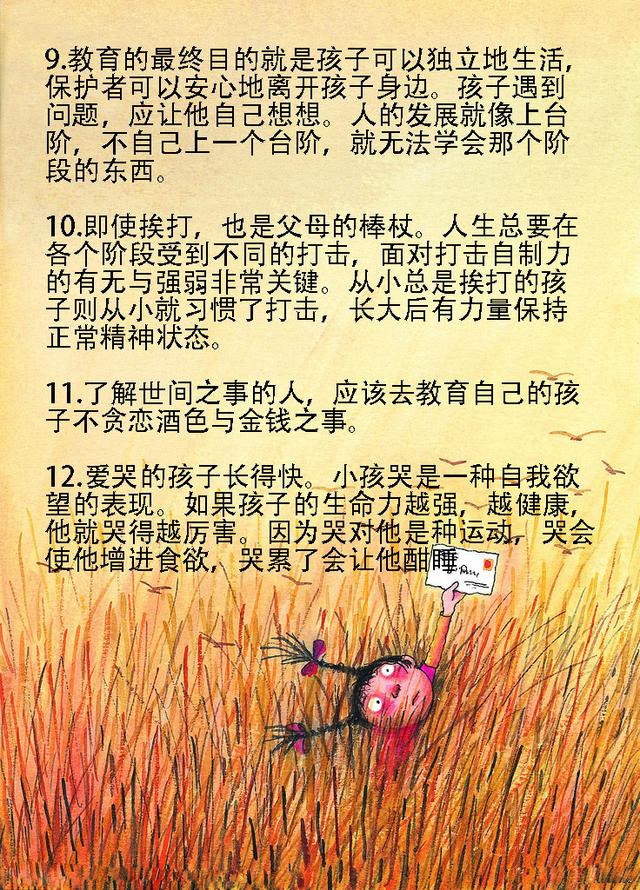 9.教育的最终目的就是孩子可以独立地生活,
保护者可以安心地离开孩子身边。孩子遇到
问题，应让他自己想想。人的发展就像上台
阶，不自己上一个台阶，就无法学会那个阶
段的东西。
10.即使挨打，也是父母的棒杖。人生总要在
各个阶段受到不同的打击，面对打击自制力
的有无与强弱非常关键。从小总是挨打的孩
子则从小就习惯了打击，长大后有力量保持
正常精神状态。
11.了解世间之事的人，应该去教育自己的孩
子不贪恋酒色与金钱之事。
12.爱哭的孩子长得快。小孩哭是一种自我欲
望的表现。如果孩子的生命力越强，越健康，
他就哭得越厉害。因为哭对他是种运动，哭会
使他增进食欲，哭累了会让他酣睡。